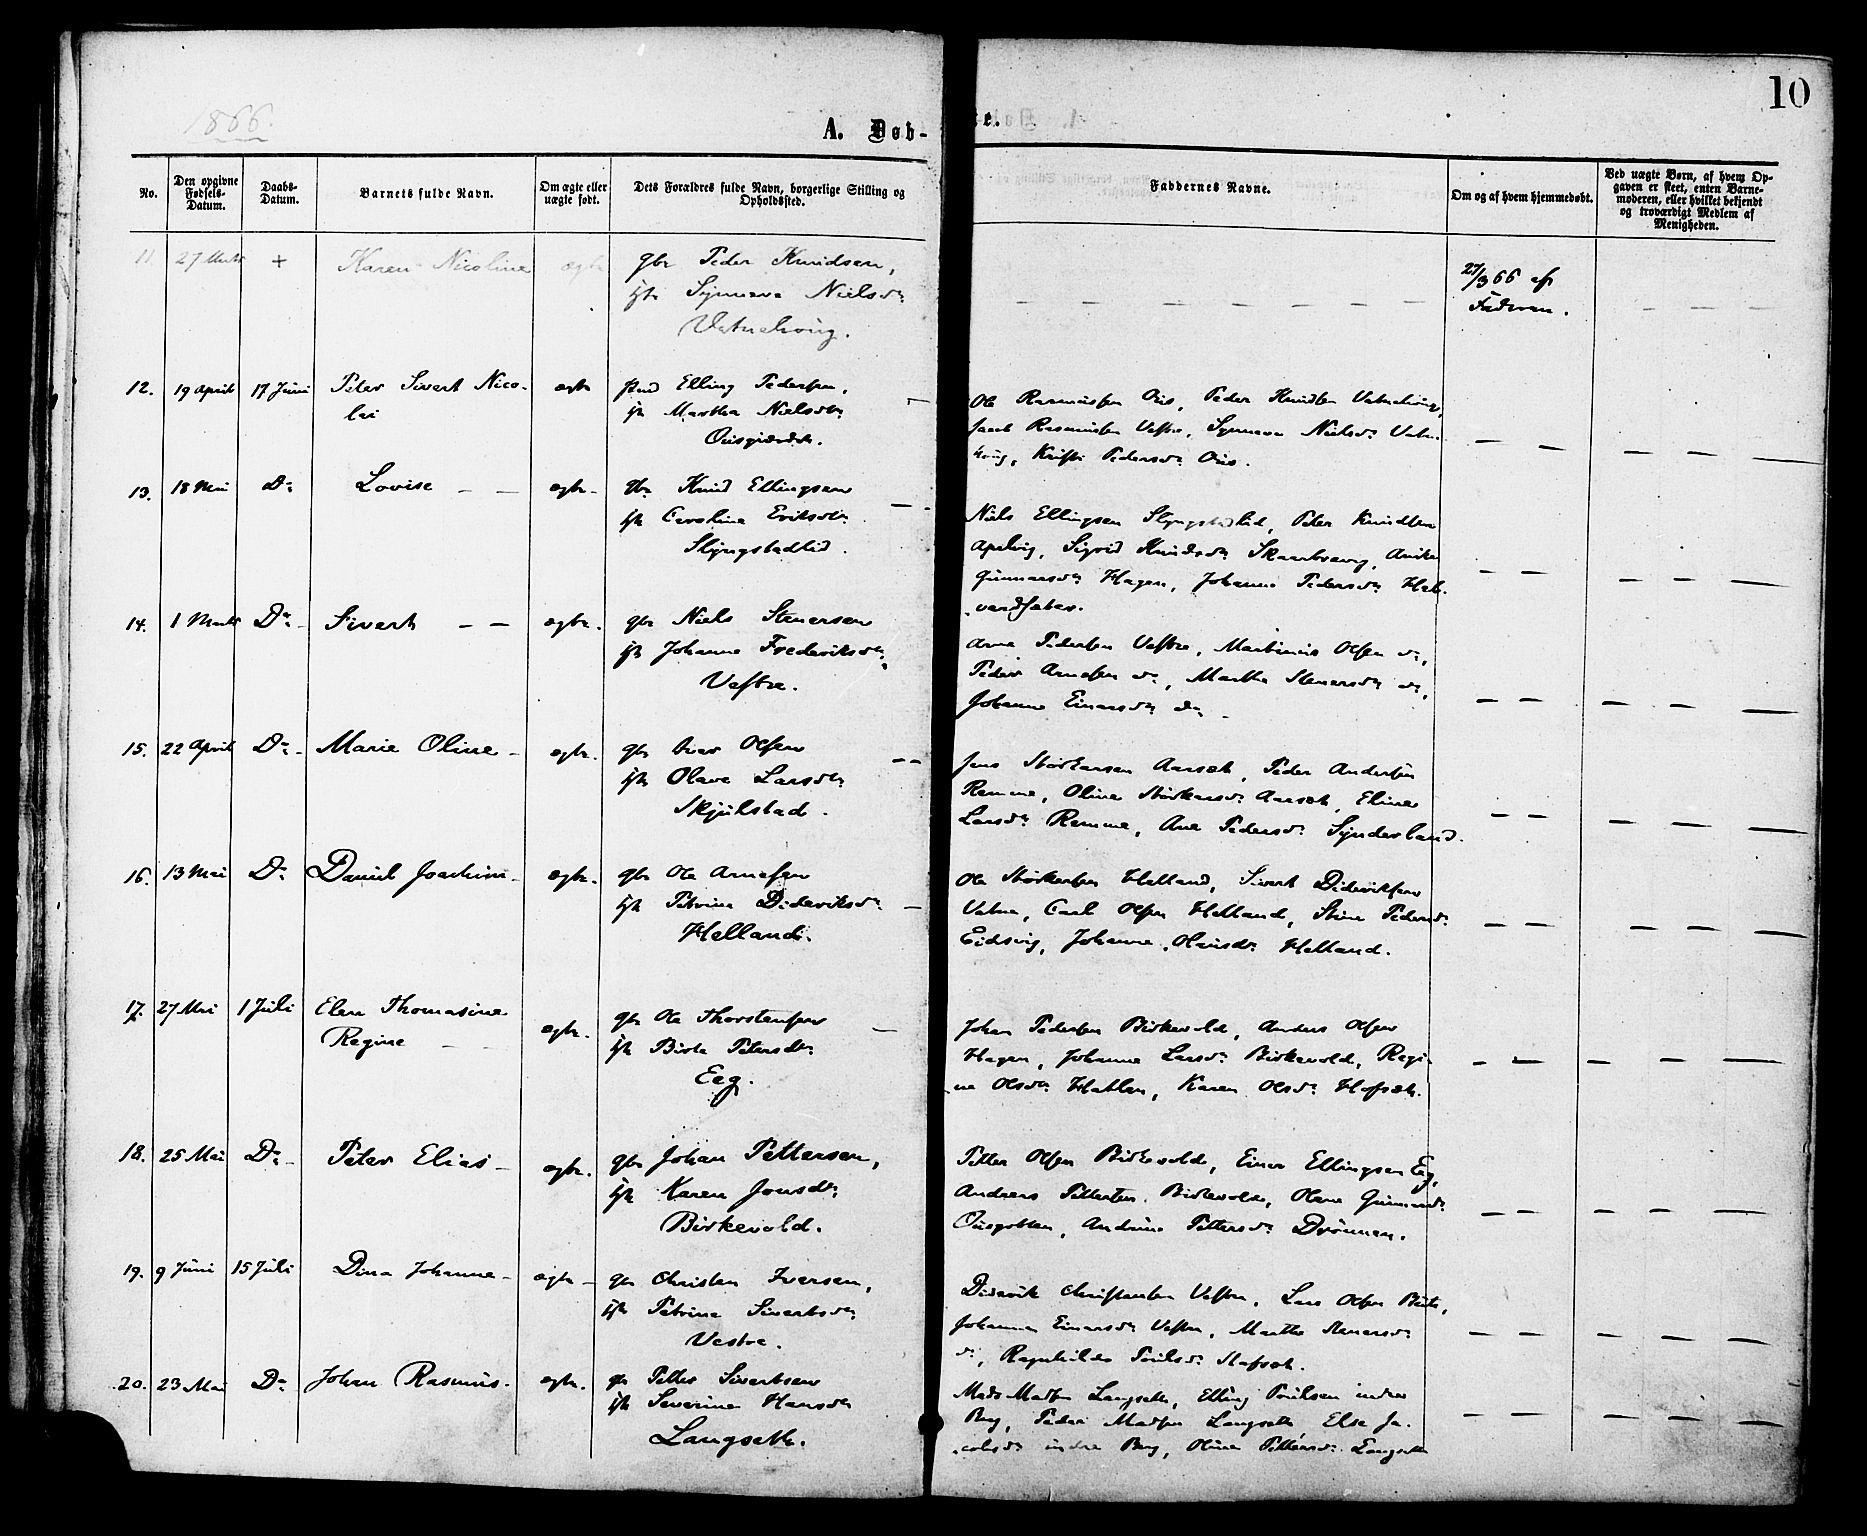 10
1866.
A. Døb-
te.
No.
Den opgivne Fødsels-Datum.
Daabs-Datum.
Barnets fulde Navn.
Om ægte eller uægte født.
Dets Forældres fulde Navn, borgerlige Stilling og Opholdssted.
Faddernes Navne.
Om og af hvem hjemmedøbt.
Ved uægte Børn, af hvem Op-
gaven er skeet, enten Barne-
moderen, eller hvilket bekjendt
og troværdigt Medlem af
Menigheden.
11 27 Marts + Karen Nicoline ægte gbr Peder Knudsen,
Synneva Nielsdr
Vatnehoug.
27/3 66 af
Faderen.
12. 19 April 17 Juni Peter Sivert Nico-
lai
ægte Elling Pedersen,
Martha Nielsdtr
Ousgjærdet.
Ole Rasmussen Ous, Peder Knudsen Vatnehoug,
Jacob Rasmussen Vestre, Synneva Nielsdr Vatne-
houg, Kristi Pedersdr Ous.
13. 18 Mai Do Lovise ægte gbr Knud Ellingsen
Caroline Eriksdtr
Slyngstadlid.
Niels Ellingsen Slyngstadlid, Peter Knudsen
Apelvig, Sigrid Knudsdr
Gunnarsdr Hagen, Johanne Pedersdr Hal-
vardsæter.
14. 1 Marts Do Sivert ægte. gbr Niels Stenersen
Johanne Frederiksdtr
Vestre.
Arne Pedersen Vestre, Martinus Olsen do,
Peder Arnesen do, Martha Stenersdr do,
Johanne Einarsdr do
15. 22 April Do Marie Oline ægte. gbr Iver Olsen
Olave Larsdtr
Skjulstad.
Jens Størkersen Aarsæt, Peder Andersen
Remme, Oline Størkersdr Aarsæt, Eline
Larsdr Remme, Ane Pedersdr Synderland.
16. 13 Mai Do Daniel Joachim ægte. gbr Ole Arnesen
Petrine Dideriksdr
Helland.
Ole Størkersen Helland, Sivert Dideriksen
Vatne, Carl Olsen Helland, Stine Pedersdr
Eidsvig, Johanne Hansdr Helland.
17. 27 Mai 1 Juli Elen Thomasine
Regine
ægte. gbr Ole Thorstensen
Birte Petersdtr
Eeg.
Johan Pedersen Birkevold, Anders Olsen
Hagen, Johanne Larsdr Birkevold, Regi-
ne Olsdtr Hatlen, Karen Olsdr Hofsæt.
18. 25 Mai Do Peter Elias ægte. gbr Johan Pettersen,
Karen Jonsdtr
Birkevold.
Petter Olsen Birkevold, Einar Ellingsen Eeg,
Andreas Pettersen Birkevold, Olave
Andrine Pettersdr Drönnen.
19. 9 Juni 15 Juli Dina Johanne ægte gbr Christen Iversen,
Petrine Sivertsdtr
Vestre.
Diderik Christensen Vestre, Lars Olsen
Johanne Einarsdtr Vestre, Marthe Stenersdr
do, Ragnhilde
20. 23 Mai Do Johan Rasmus. ægte. Petter Sivertsen
Severine Hansdtr
Langseth.
Mads Madsen Langseth, Elling Poulsen indre
Berg, Peder Madsen Langseth, Else Ja-
cobsdr indre Berg, Oline Pettersdr Langseth